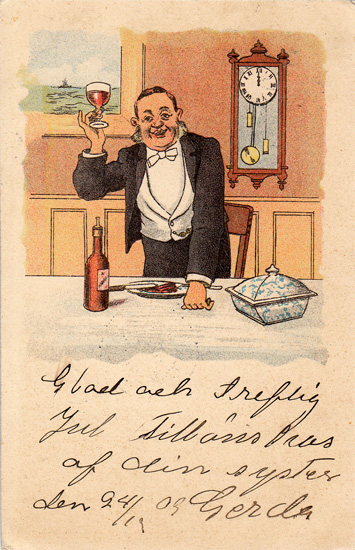 Glad och Treflig
Jul Tillönskas
af din syster
den 24/12 09 Gerda